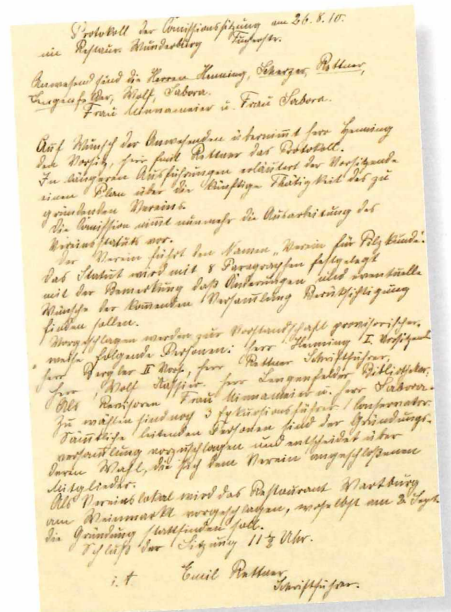 Protokoll der Comissionssitzung am 26.8.10.
im Restaur. Wunderburg
Anwesend sind die Herren Henning, Rettner,
Wolf, Sabora.
Frau Minnameier u. Frau Sabora.
Auf Wunsch der Anwesenden übernimt Herr Henning
den Vorsitz, Rettner das Protokoll.
In längeren Ausführungen erläutert der Vorsitzende
einen Plan über die künftige Thätigkeit des zu
gründenden Vereins.
Die Comission nimt nunmehr die Ausarbeitung des
Vereinsstatuts vor.
Der Verein führt den Namen „Verein für Pilzkunde".
Das Statut wird mit 8 Paragraphen festgelegt
mit der Bemerkung daß Änderungen und eventuelle
Wünsche der komenden Versamlung Berücksichtigung
finden sollen.
Vorgeschlagen werden zur Vorstandschaft provisorischer-
weise folgende Personen: Herr Henning I. Vorsitzender
Herr II Vors., Herr Rettner Schriftführer,
Herr Wolf Kassier. Herr Lengenfelder Bibliothekar.
Als Revisoren Frau Minnameier u. Herr Sabora.
Zu wählen sind noch 3 Exkursionsführer
Sämmtliche leitenden Personen sind der Gründungs-
versamlung vorzuschlagen und entscheidet über
deren Wahl, die sich dem Verein angeschlossenen
Mitglieder.
Als Vereinslokal wird das Restaurant Wartburg
am Weinmarkt vorgeschlagen, woselbst am Sept
die Gründung stattfinden soll.
Schluß der Sitzung 11 ½ Uhr.
Emil Rettner
Schriftführer.